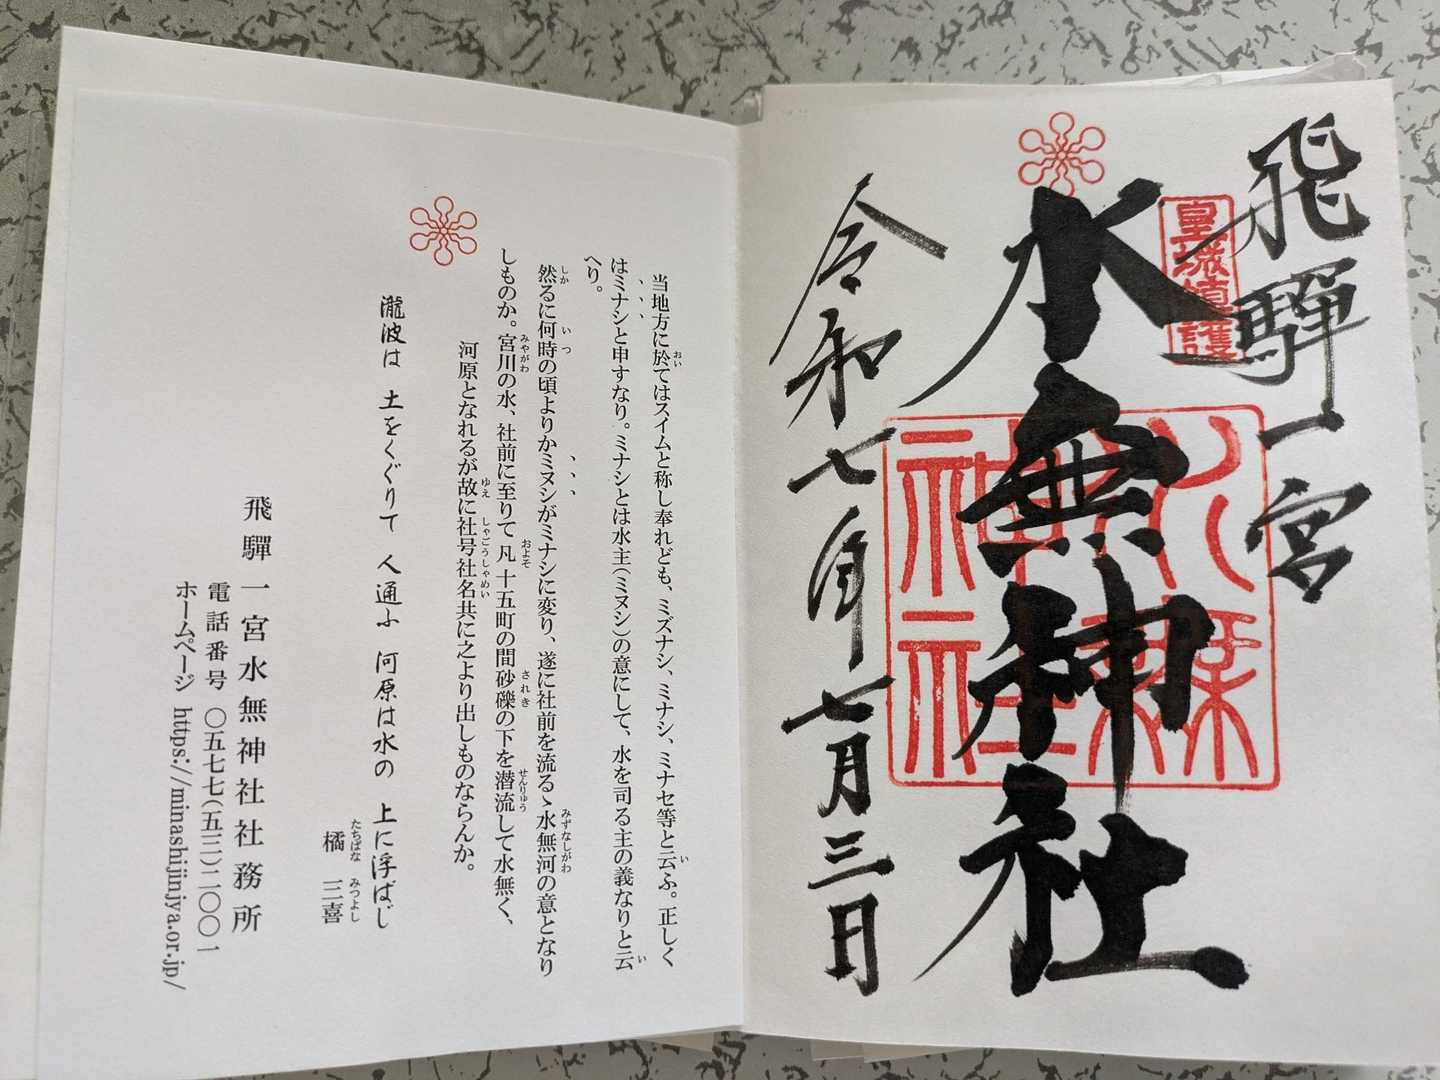 飛驒一宮
皇城鎮護
水無神社
水無神社
令和七年七月三日
当地方に於てはスイムと称し奉れども、ミズナシ、ミナシ、ミナセ等と云ふ。正しく
はミナシと申すなり。ミナシとは水主(ミヌシ)の意にして、水を司る主の義なりと云
へり。
然るに何時の頃よりかミヌシがミナシに変り、遂に社前を流るゝ水無河の意となり
しものか。宮川の水、社前に至りて凡十五町の間砂礫の下を潜流して水無く、
河原となれるが故に社号社名共に之より出しものならんか。
瀧波は 土をくぐりて 人通ふ 河原は水の 上に浮ばじ
橘 三喜
飛驒一宮水無神社社務所
電話番号 〇五七七(五三)二〇〇一
ホームページ https://minashijinjya.or.jp/